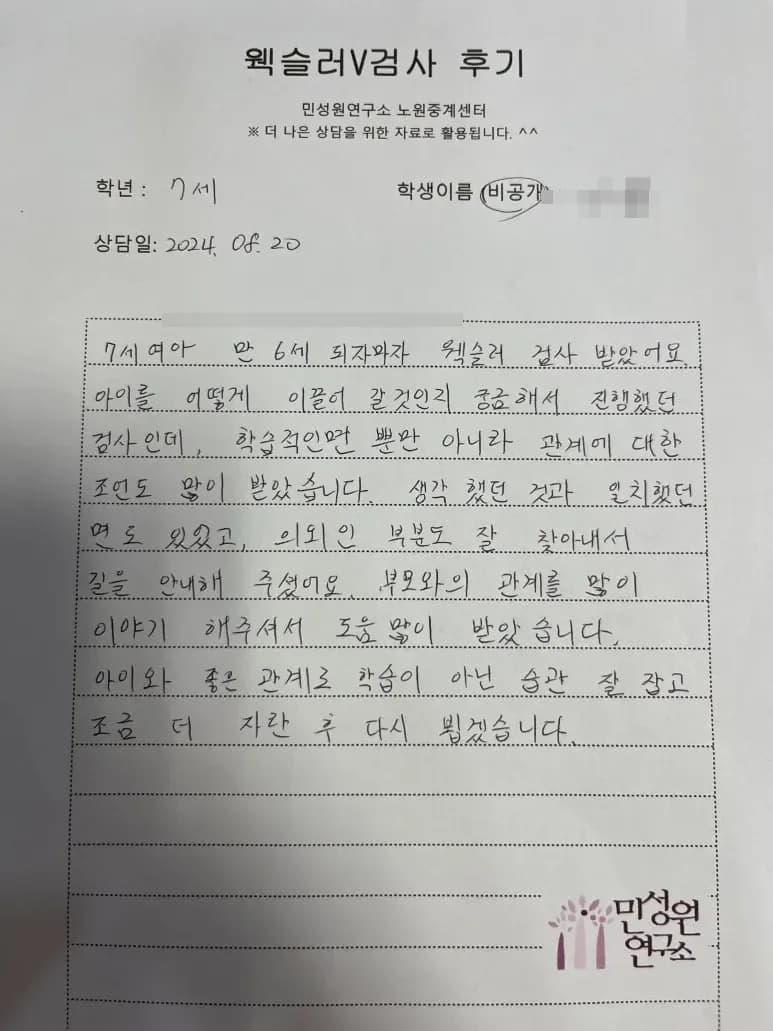 웩슬러V검사 후기
민성원연구소 노원중계센터
※ 더 나은 상담을 위한 자료로 활용됩니다. ^^
학년 : 7세 학생이름 (비공개)
상담일: 2024. 08. 20
7세여아 만 6세 되자마자 웩슬러 검사 받았어요.
아이를 어떻게 이끌어 갈것인지 궁금해서 진행했던
검사인데, 학습적인면 뿐만 아니라 관계에 대한
조언도 많이 받았습니다. 생각 했던 것과 일치했던
면도 있었고, 의외인 부분도 잘 찾아내서
길을 안내해 주셨어요. 부모와의 관계를 많이
이야기 해주셔서 도움 많이 받았습니다.
아이와 좋은 관계로 학습이 아닌 습관 잘 잡고
조금 더 자란 후 다시 뵙겠습니다.
민성원
연구소